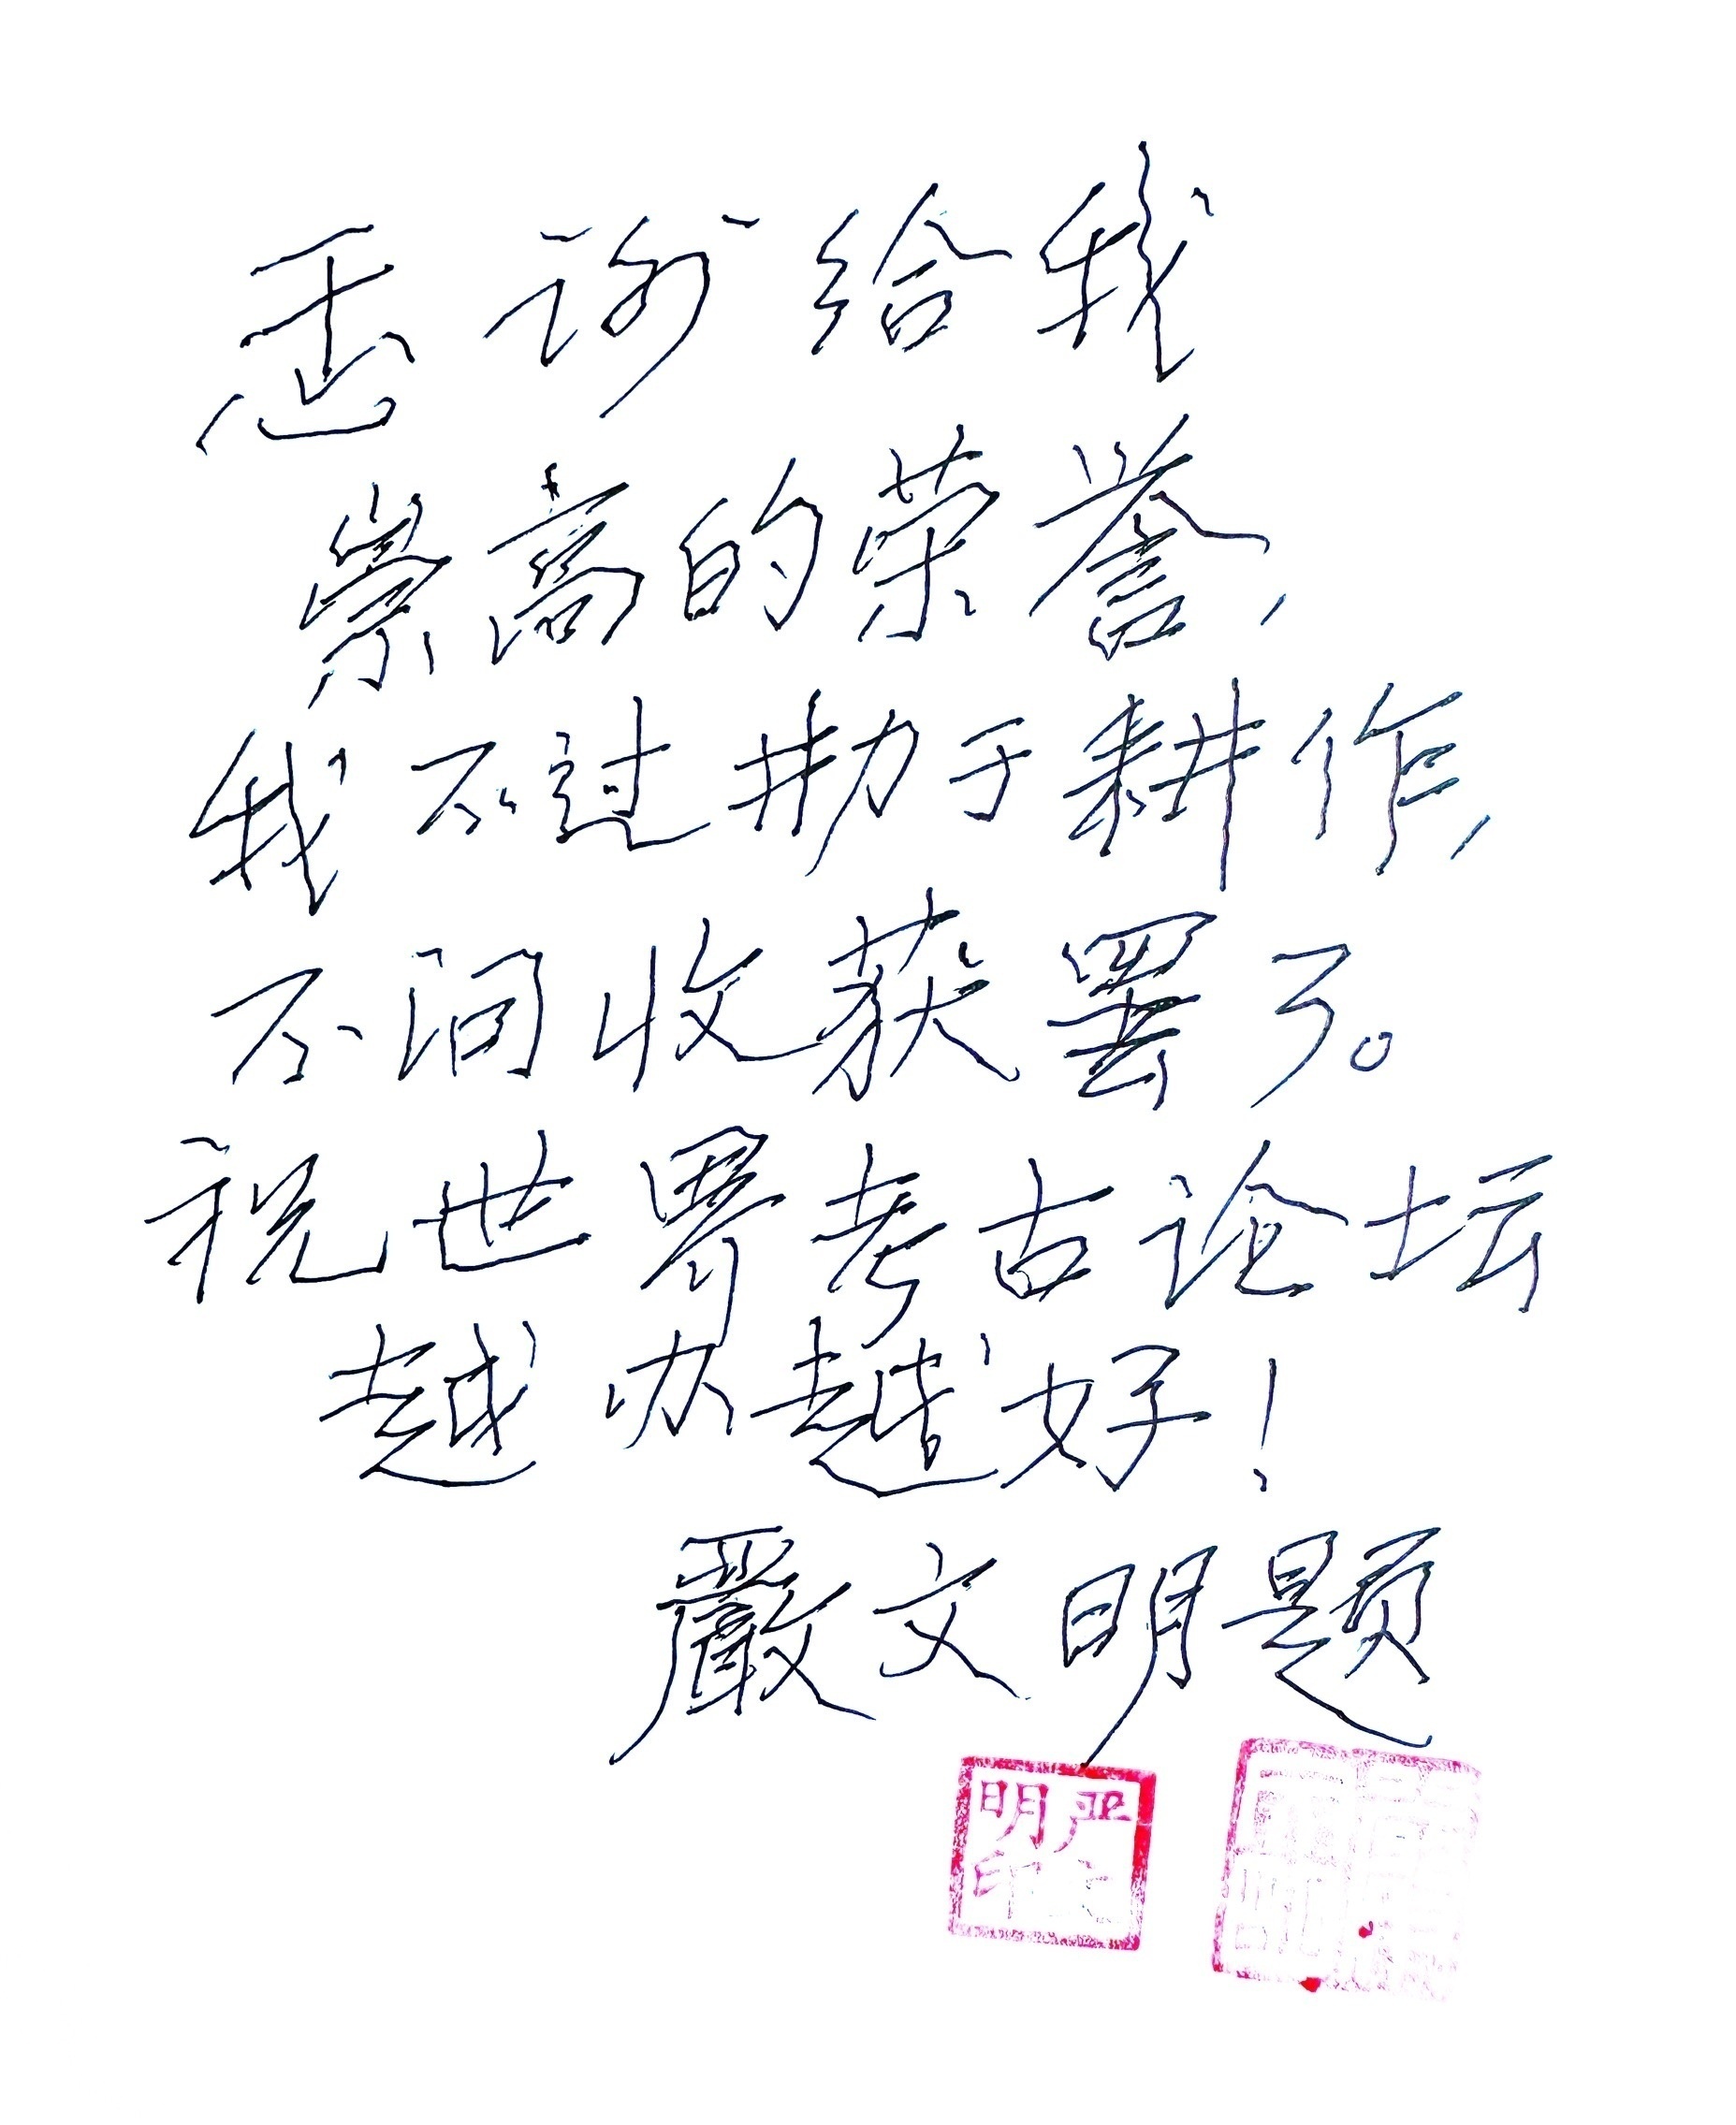 感谢给我
崇高的荣誉,
我不过勤于耕作,
不问收获罢了。
祝世界考古论坛
越办越好!
嚴文明题
严文明印